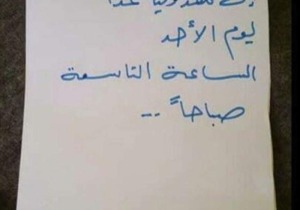 غداً
ليوم الأحد
الساعة التاسعة
صباحاً ..